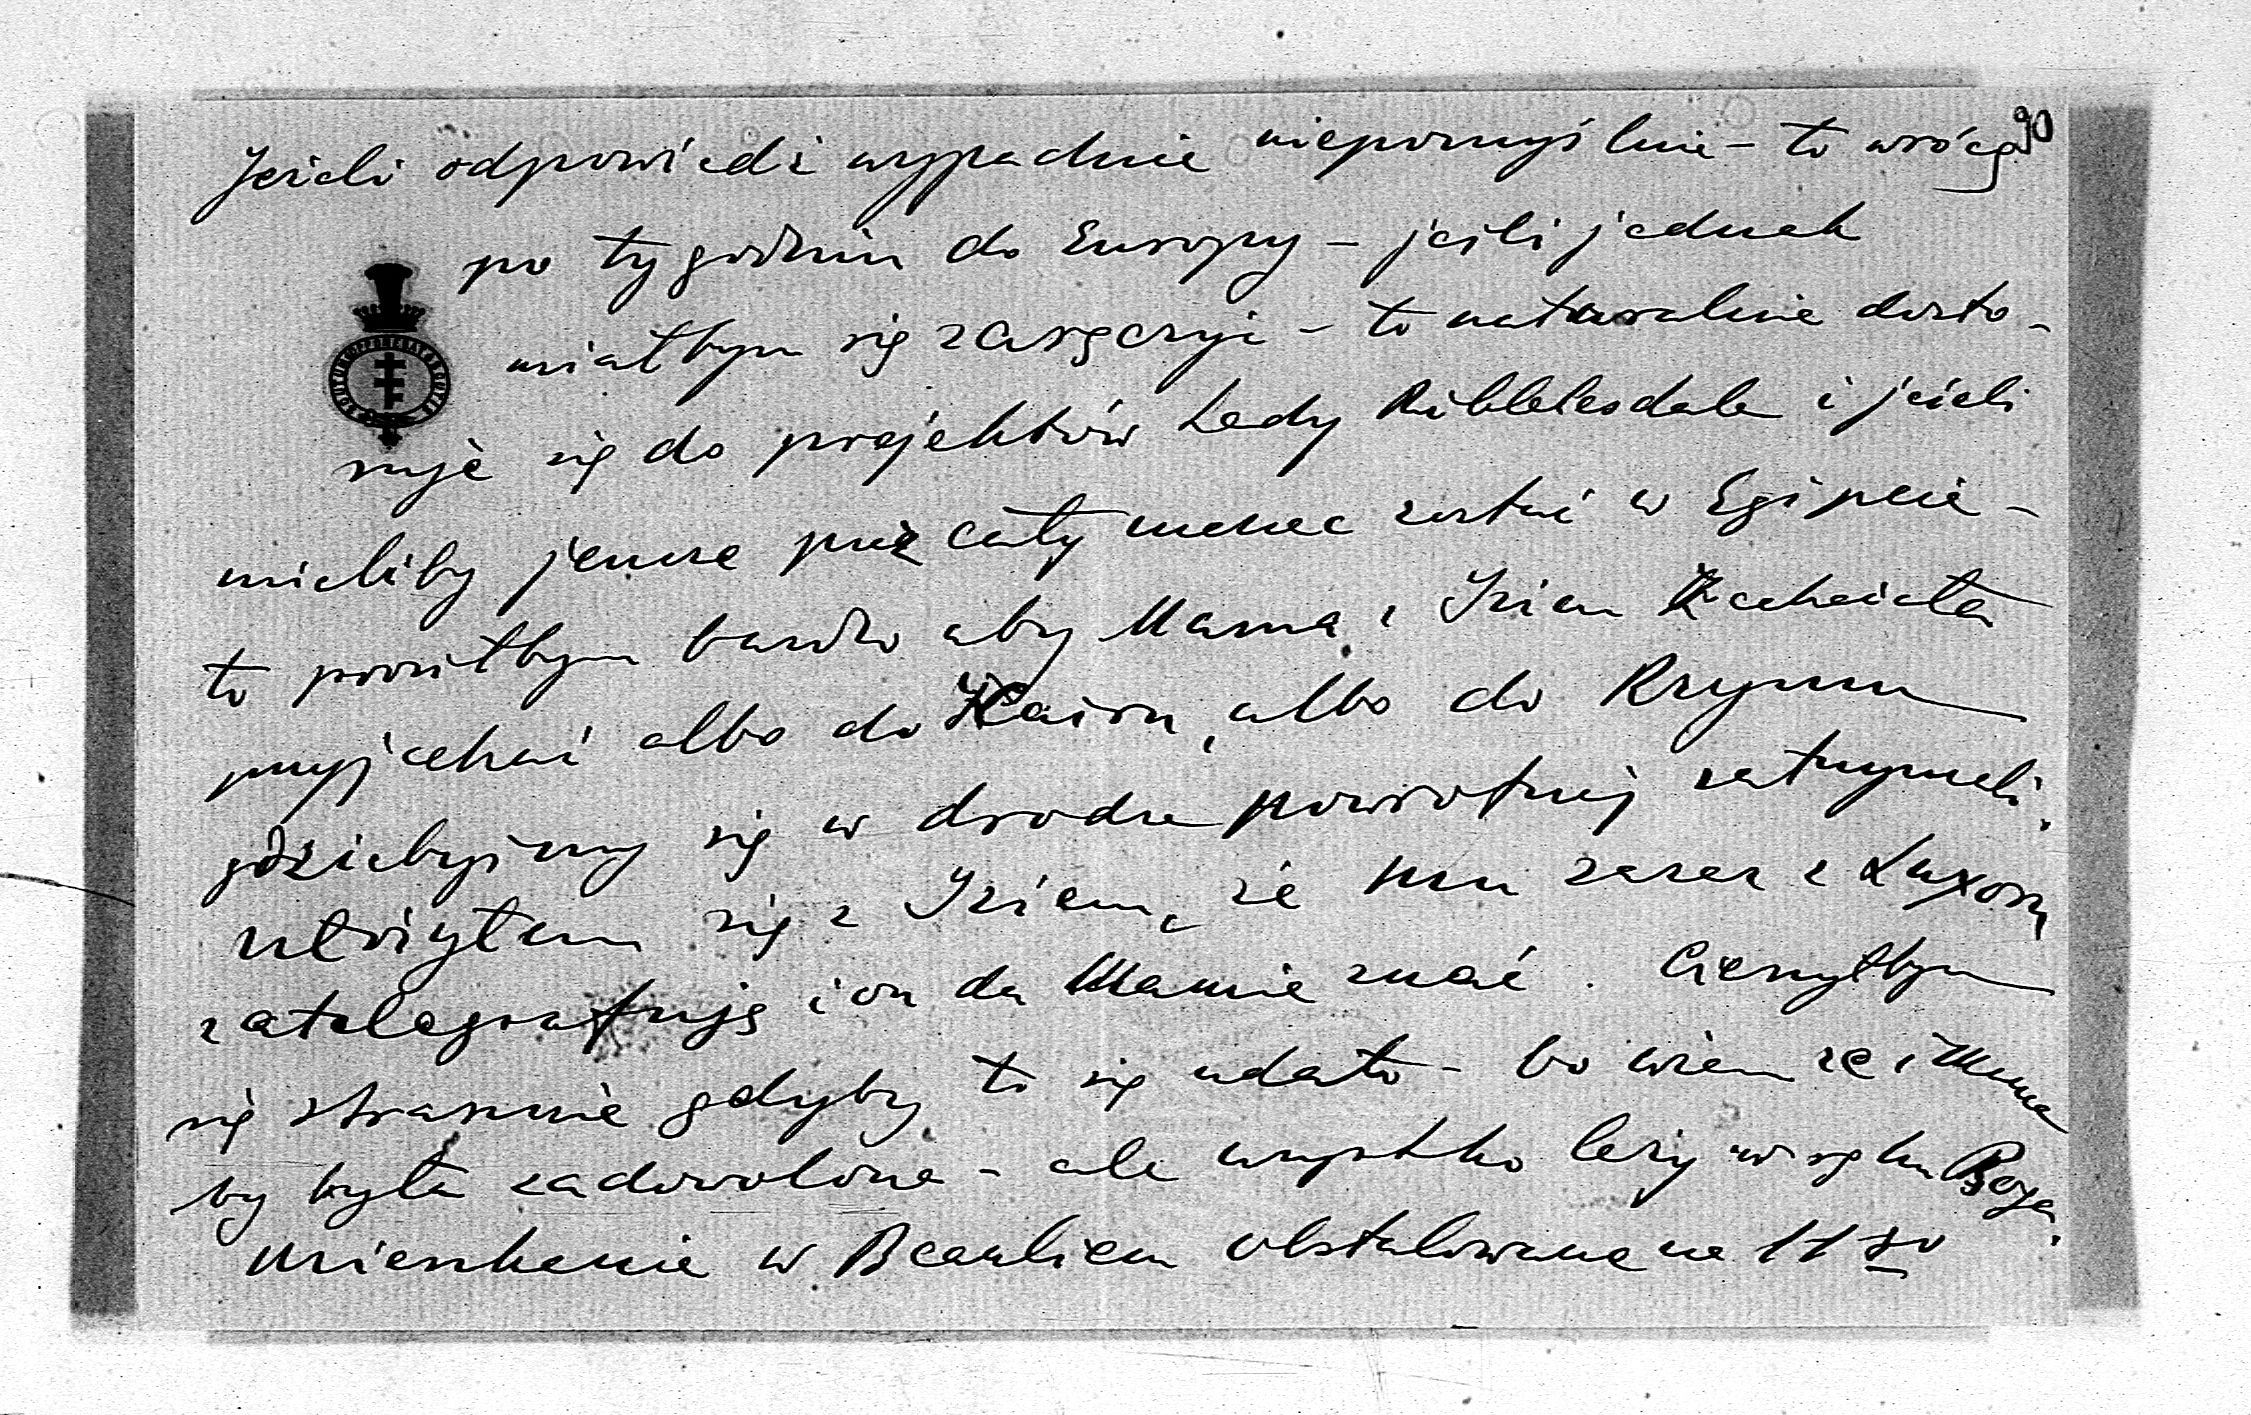 90
Jeżeli odpowiedź wypadnie niepomyślnie – to wrócę
po tygodniu do Europy – jeśli jednak
miałbym się zaręczyć – to naturalnie dosto-
suję się do projektów Lady Ribblesdale i jeżeli
mieliby jeszcze przez cały marzec zostać w Egipcie –
to prosiłbym bardzo aby Mama i Izien zechciała
przyjechać albo do Kairu, albo do Rzymu
gdziebyśmy się w drodze powrotnej zatrzymali.
ułożyłem się z Iziem, że mu zaraz z Luxoru
zatelegrafuję i on da Mamie znać. Cieszyłbym
się strasznie gdyby to się udało – bo wiem że i Mama
by była zadowolona – ale wszystko leży w ręku Boga.
Mieszkanie w Beaulieu obstalowane na 11 go